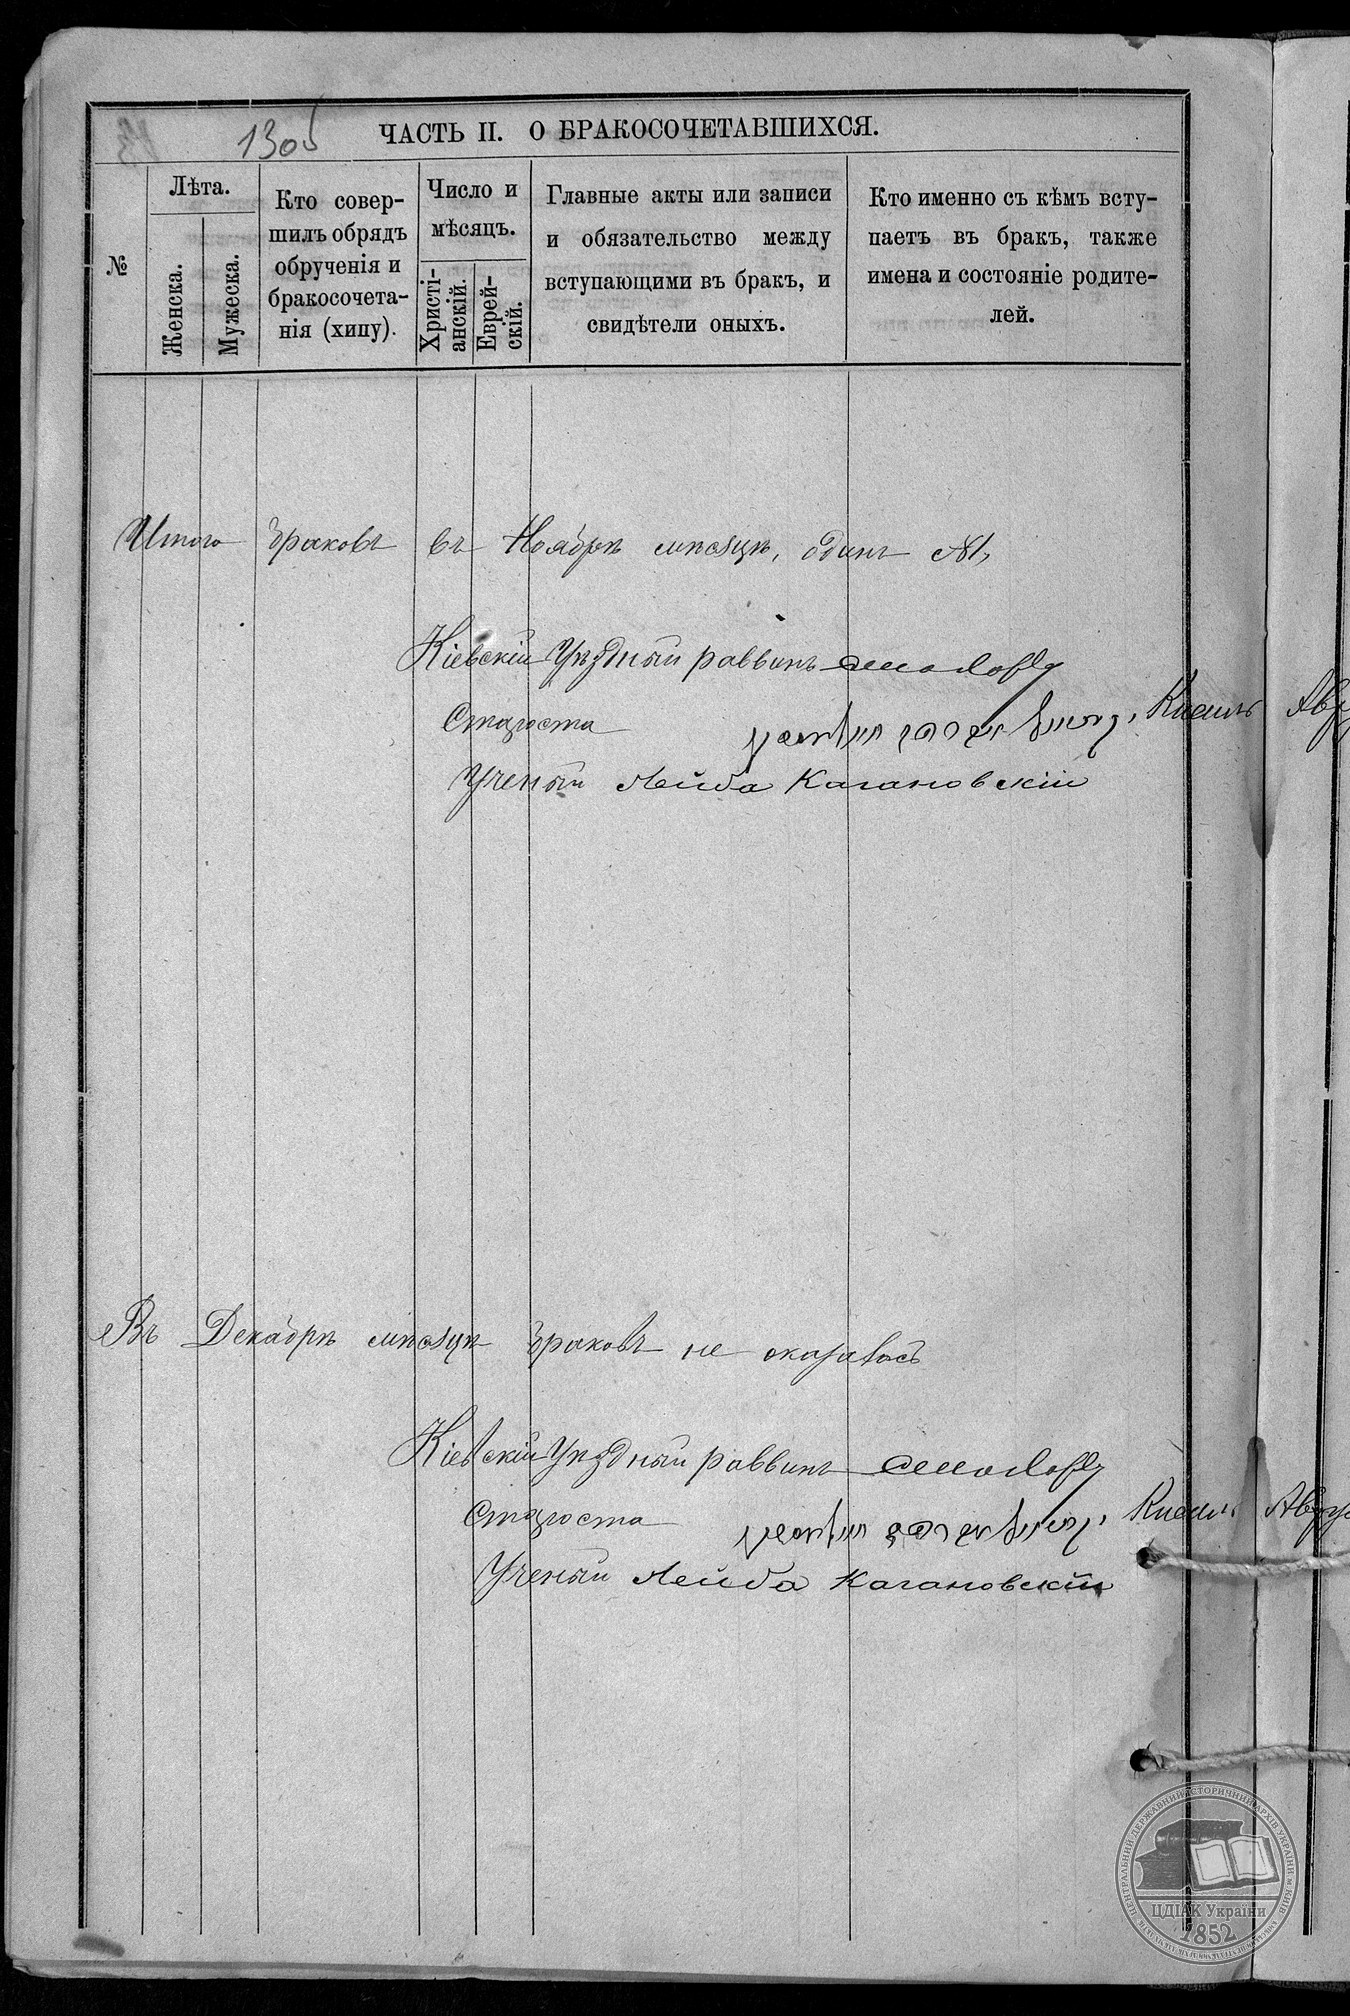 1305
ЧАСТЬ II. О БРАКОСОЧЕТАВШИХСЯ.
№
Лѣта.
Женска.
Мужеска.
Кто совер-
шилъ обрядъ
обрученія и
бракосочета-
нія (хипу).
Число и
мѣсяцъ.
Христі-
анскій.
Еврей-
скій.
Главные акты или записи
и обязательство между
вступающими въ бракъ, и
свидѣтели оныхъ.
Кто именно съ кѣмъ всту-
паетъ въ бракъ, также
имена и состояніе родите-
лей.
Итого браковъ въ Ноябрѣ мѣсяцѣ, одинъ №1,
Кіевскій Уѣздный раввинъ
Староста Кисиль
Ученый Лейба Кагановскій
Въ Декабрѣ мѣсяцѣ браковъ не оказалось
Кіевскій Уѣздный раввинъ
Староста Кисиль
Ученый Лейба Кагановскій
ЦЕНТРАЛЬНИЙ ДЕРЖАВНИЙ ІСТОРИЧНИЙ АРХІВ УКРАЇНИ м. КИЇВ
ЦДІАК України
1852